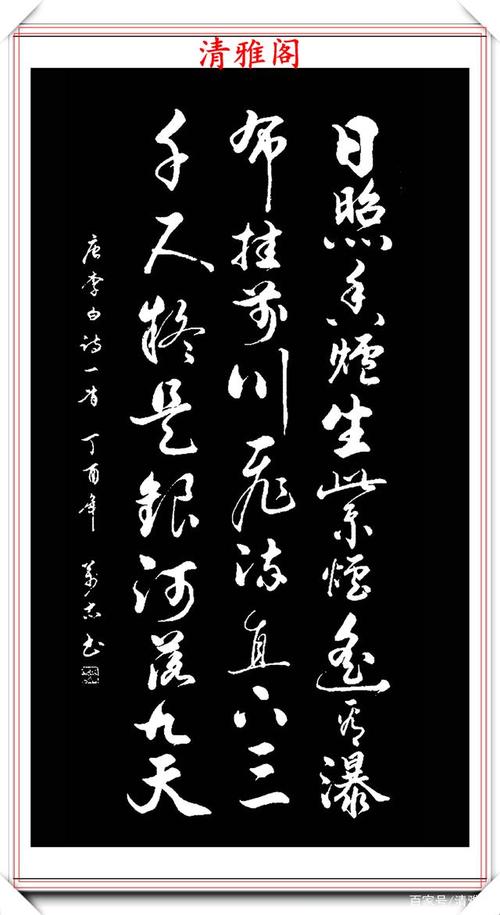 清雅阁
日照香爐生紫煙遙看瀑
布挂前川飛流直下三
千尺疑是銀河落九天
唐李白诗一首 丁酉年 萬志书
百家号/清雅